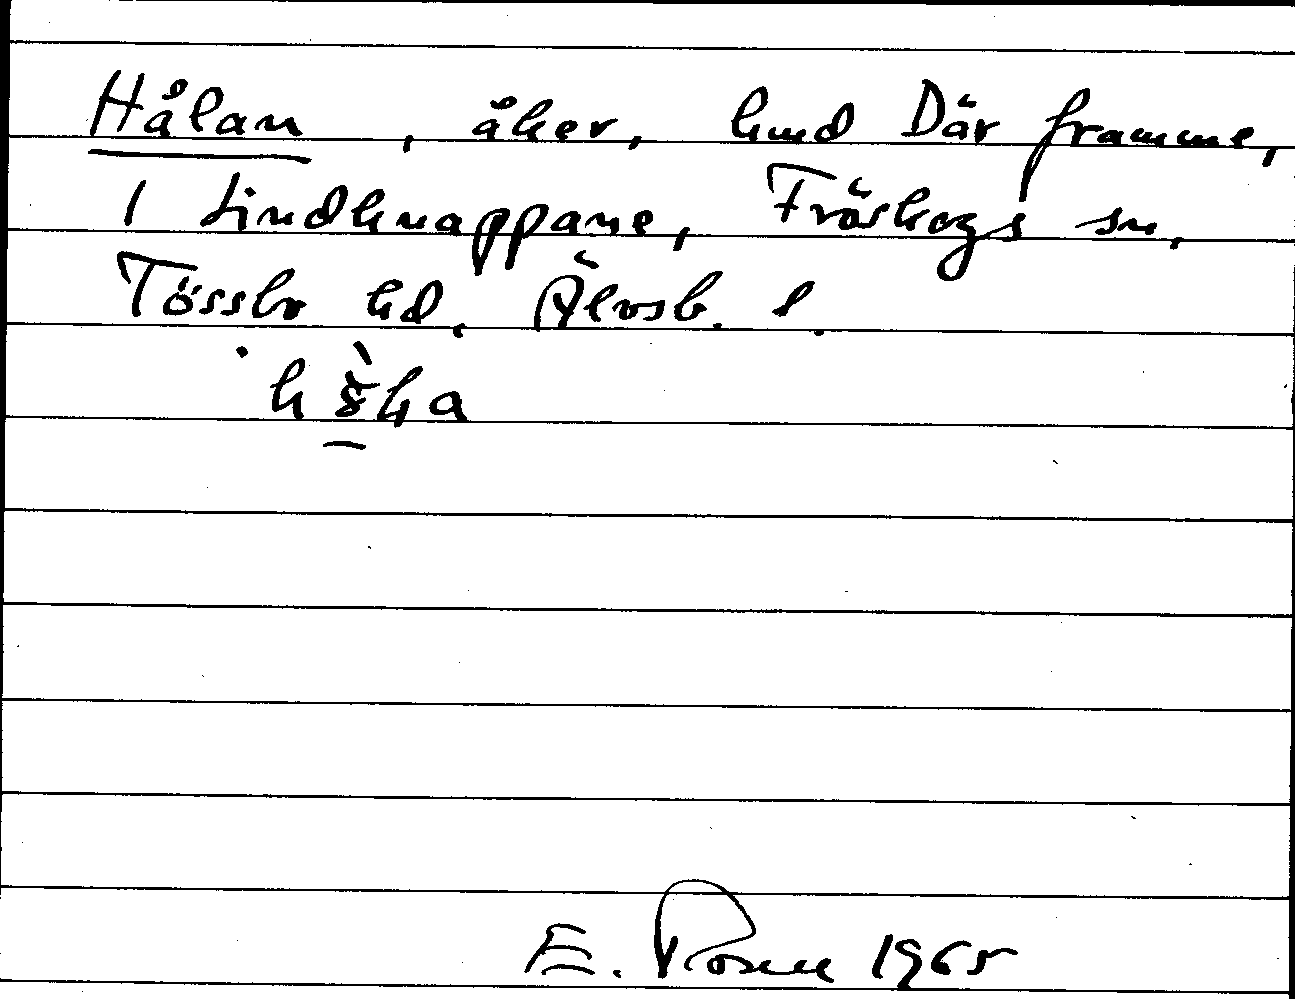 Hålan, åker, hmd Där framme,
1 Lindknappane, Fröskogs sn,
Tössbo hd. Älvsb. l.
E. Rosell 1965